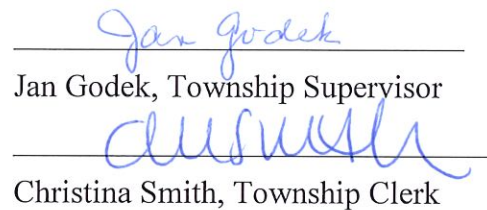 Jan Godek
Jan Godek, Township Supervisor
Christina Smith, Township Clerk